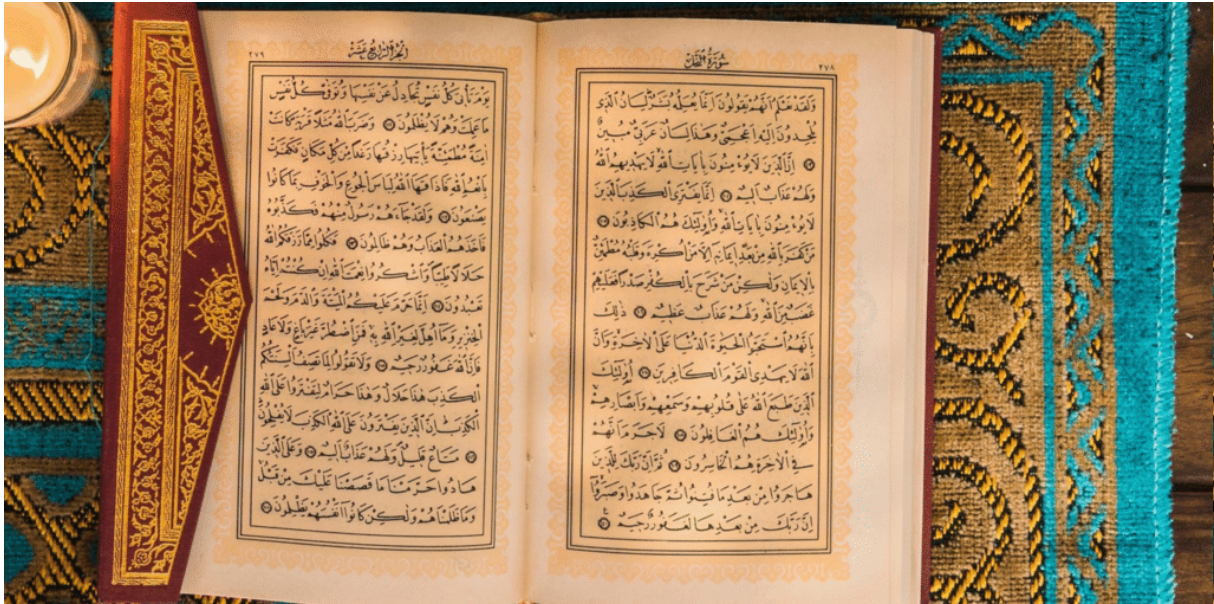 ٢٧٨
سورة النحل
وَلَقَدْ نَعْلَمُ اَنَّهُمْ يَقُولُونَ اِنَّمَا يُعَلِّمُهُ بَشَرٌ لِسَانُ الَّذِى
يُلْحِدُونَ اِلَيْهِ اَعْجَمِىٌّ وَهٰذَا لِسَانٌ عَرَبِىٌّ مُبِينٌ
اِنَّ الَّذِينَ لَا يُؤْمِنُونَ بِاٰيَاتِ اللّٰهِ لَا يَهْدِيهِمُ اللّٰهُ
وَلَهُمْ عَذَابٌ اَلِيمٌ اِنَّمَا يَفْتَرِى الْكَذِبَ الَّذِينَ
لَا يُؤْمِنُونَ بِاٰيَاتِ اللّٰهِ وَاُولٰئِكَ هُمُ الْكَاذِبُونَ
مَنْ كَفَرَ بِاللّٰهِ مِنْ بَعْدِ اِيمَانِهِ اِلَّا مَنْ اُكْرِهَ وَقَلْبُهُ مُطْمَئِنٌّ
بِالْاِيمَانِ وَلٰكِنْ مَنْ شَرَحَ بِالْكُفْرِ صَدْرًا فَعَلَيْهِمْ
غَضَبٌ مِنَ اللّٰهِ وَلَهُمْ عَذَابٌ عَظِيمٌ ذٰلِكَ
بِاَنَّهُمُ اسْتَحَبُّوا الْحَيٰوةَ الدُّنْيَا عَلَى الْاٰخِرَةِ وَاَنَّ
اللّٰهَ لَا يَهْدِى الْقَوْمَ الْكَافِرِينَ اُولٰئِكَ
الَّذِينَ طَبَعَ اللّٰهُ عَلٰى قُلُوبِهِمْ وَسَمْعِهِمْ وَاَبْصَارِهِمْ
وَاُولٰئِكَ هُمُ الْغَافِلُونَ لَا جَرَمَ اَنَّهُمْ
فِى الْاٰخِرَةِ هُمُ الْخَاسِرُونَ ثُمَّ اِنَّ رَبَّكَ لِلَّذِينَ
هَاجَرُوا مِنْ بَعْدِ مَا فُتِنُوا ثُمَّ جَاهَدُوا وَصَبَرُوا
اِنَّ رَبَّكَ مِنْ بَعْدِهَا لَغَفُورٌ رَحِيمٌ
الجزء الرابع عشر
٢٧٩
يَوْمَ تَأْتِى كُلُّ نَفْسٍ تُجَادِلُ عَنْ نَفْسِهَا وَتُوَفّٰى كُلُّ نَفْسٍ
مَا عَمِلَتْ وَهُمْ لَا يُظْلَمُونَ وَضَرَبَ اللّٰهُ مَثَلًا قَرْيَةً كَانَتْ
اٰمِنَةً مُطْمَئِنَّةً يَأْتِيهَا رِزْقُهَا رَغَدًا مِنْ كُلِّ مَكَانٍ فَكَفَرَتْ
بِاَنْعُمِ اللّٰهِ فَاَذَاقَهَا اللّٰهُ لِبَاسَ الْجُوعِ وَالْخَوْفِ بِمَا كَانُوا
يَصْنَعُونَ وَلَقَدْ جَاءَهُمْ رَسُولٌ مِنْهُمْ فَكَذَّبُوهُ
فَاَخَذَهُمُ الْعَذَابُ وَهُمْ ظَالِمُونَ فَكُلُوا مِمَّا رَزَقَكُمُ اللّٰهُ
حَلَالًا طَيِّبًا وَاشْكُرُوا نِعْمَتَ اللّٰهِ اِنْ كُنْتُمْ اِيَّاهُ
تَعْبُدُونَ اِنَّمَا حَرَّمَ عَلَيْكُمُ الْمَيْتَةَ وَالدَّمَ وَلَحْمَ
الْخِنْزِيرِ وَمَا اُهِلَّ لِغَيْرِ اللّٰهِ بِهِ فَمَنِ اضْطُرَّ غَيْرَ بَاغٍ وَلَا عَادٍ
فَاِنَّ اللّٰهَ غَفُورٌ رَحِيمٌ وَلَا تَقُولُوا لِمَا تَصِفُ اَلْسِنَتُكُمُ
الْكَذِبَ هٰذَا حَلَالٌ وَهٰذَا حَرَامٌ لِتَفْتَرُوا عَلَى اللّٰهِ
الْكَذِبَ اِنَّ الَّذِينَ يَفْتَرُونَ عَلَى اللّٰهِ الْكَذِبَ لَا يُفْلِحُونَ
مَتَاعٌ قَلِيلٌ وَلَهُمْ عَذَابٌ اَلِيمٌ وَعَلَى الَّذِينَ
هَادُوا حَرَّمْنَا مَا قَصَصْنَا عَلَيْكَ مِنْ قَبْلُ
وَمَا ظَلَمْنَاهُمْ وَلٰكِنْ كَانُوا اَنْفُسَهُمْ يَظْلِمُونَ